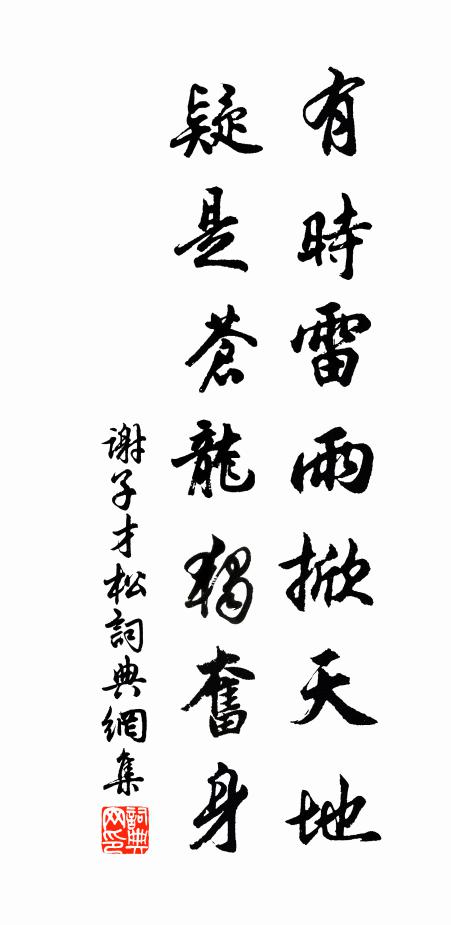 有時雷雨掀天地
疑是蒼龍獨奮身
謝子才松詞典網集
詞典网印